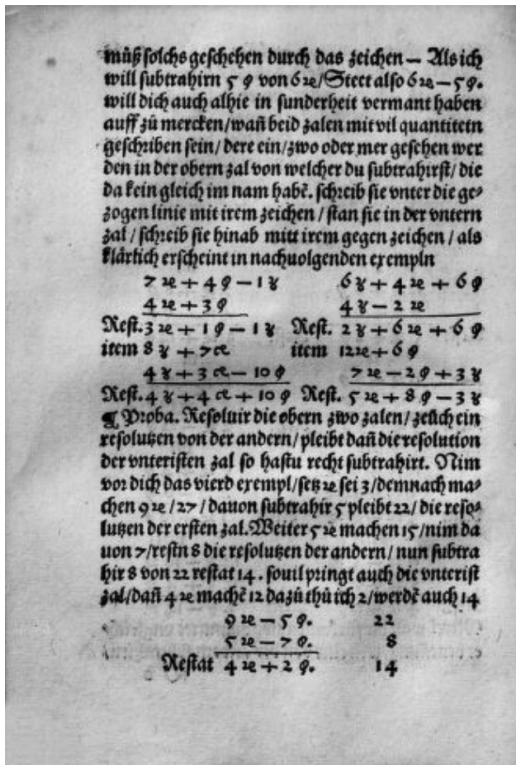 müß solchs geschehen durch das zeichen — Als ich
will subtrahirn 5 φ von 6 ꝛe/Steet also 6 ꝛe — 5 φ.
will dich auch alhie in sunderheit vermant haben
auff zů mercken/wañ beid zalen mit vil quantitetn
geschriben sein/ dere ein/zwo oder mer gesehen wer
den in der obern zal von welcher du subtrahirst/ die
da kein gleich im nam habē. schreib sie vnter die ge⸗
zogen linie mit irem zeichen / stan sie in der vntern
zal / schreib sie hinab mitt irem gegen zeichen / als
klärlich erscheint in nachuolgenden exempln
7 ꝛe + 4 φ — 1 ȣ 6 ȣ + 4 ꝛe + 6 φ
4 ꝛe + 3 φ 4 ȣ — 2 ꝛe
Rest. 3 ꝛe + 1 φ — 1 ȣ Rest. 2 ȣ + 6 ꝛe + 6 φ
item 8 ȣ + 7 ꝛe item 12 ꝛe + 6 φ
4 ȣ + 3 ꝛe — 10 φ 7 ꝛe — 2 φ + 3 ȣ
Rest. 4 ȣ + 4 ꝛe + 10 φ Rest. 5 ꝛe + 8 φ — 3 ȣ
¶ Proba. Resoluir die obern zwo zalen/ zeüch ein
resolutzen von der andern/ pleibt dañ die resolution
der vnteristen zal so hastu recht subtrahirt. Nim
vor dich das vierd exempl/ setz ꝛe sei 3/ demnach ma⸗
chen 9 ꝛe /27/ dauon subtrahir 5 pleibt 22/ die reso⸗
lutzen der ersten zal. Weiter 5 ꝛe machen 15/ nim da
uon 7/ restn 8 die resolutzen der andern/ nun subtra
hir 8 von 22 restat 14. souil pringt auch die vnterist
zal/ dañ 4 ꝛe machē 12 dazů thů ich 2/ werdē auch 14
9 ꝛe — 5 φ. 22
5 ꝛe — 7 φ. 8
Restat 4 ꝛe + 2 φ. 14